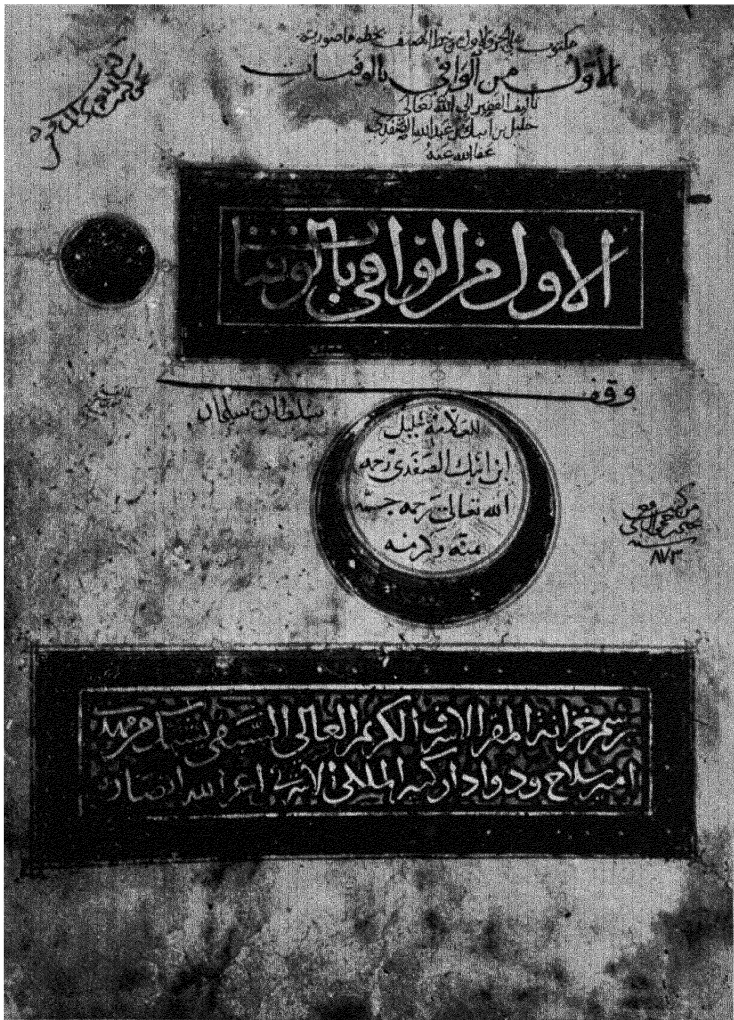 مكتوب على الجزء الاول بخط المصنف بخطه ما صورته
الأول من الوافي بالوفيات
تأليف الفقير إلى الله تعالى
خليل بن أيبك بن عبد الله الصفدي
عفا الله عنه
الاول من الوافي بالوفيات
وقف
سلطان سليمان
للعلامة خليل
ابن ايبك الصفدي رحمه
الله تعالى برحمه جنته
منه وكرمه
سنة
٨٧٣
برسم خزانة المقر الاشرف الكريم العالي السيفي يشبك من مهدي
امير سلاح ودوادار كبير الملكي الاشرفي اعز الله انصاره